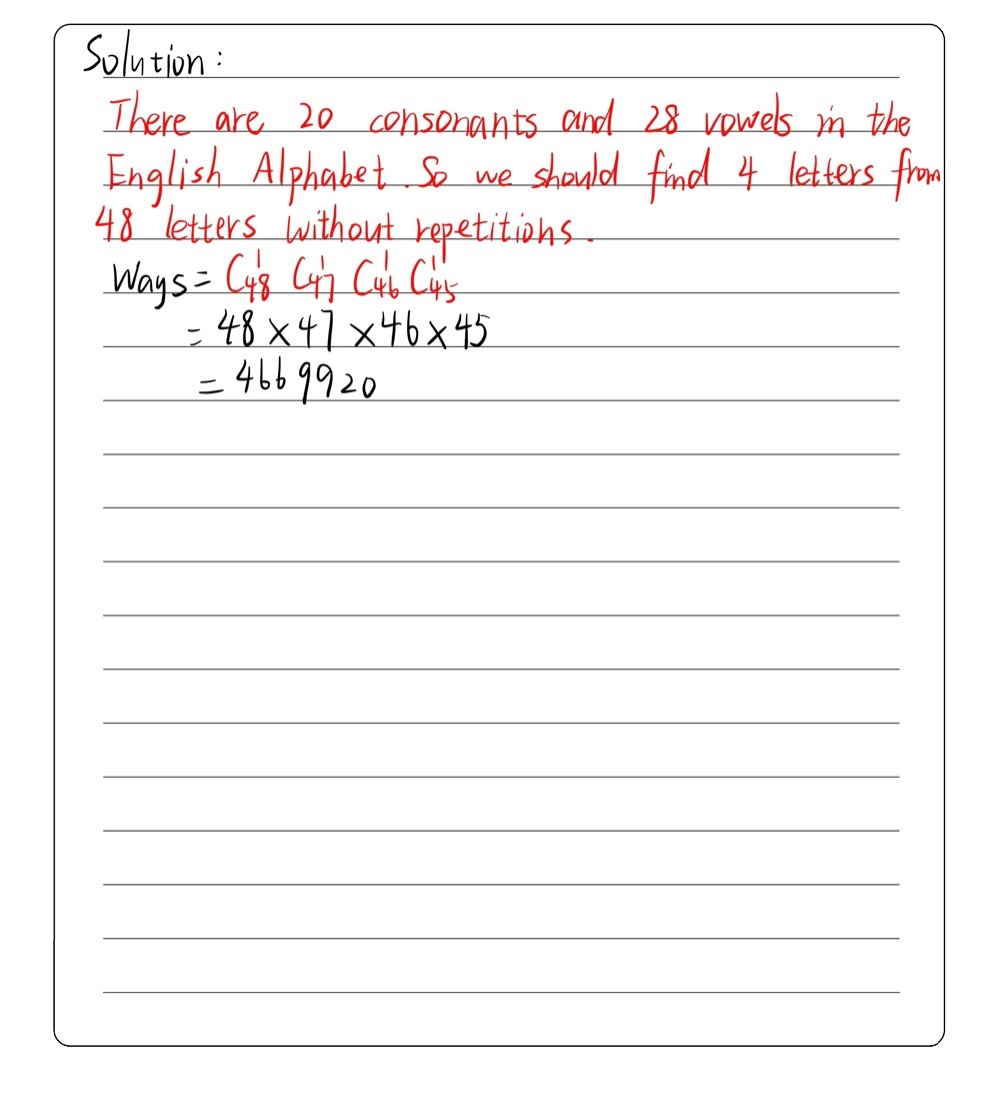 Solution:
There are 20 consonants and 28 vowels in the
English Alphabet. So we should find 4 letters from
48 letters without repetitions.
Ways = C¹₄₈ C¹₄₇ C¹₄₆ C¹₄₅
= 48×47×46×45
= 4669920